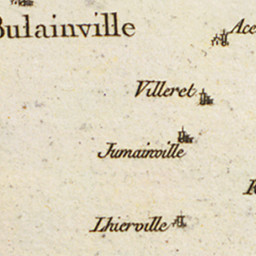 Bulainville
Ace
Villeret
Jumainville
Lhierville